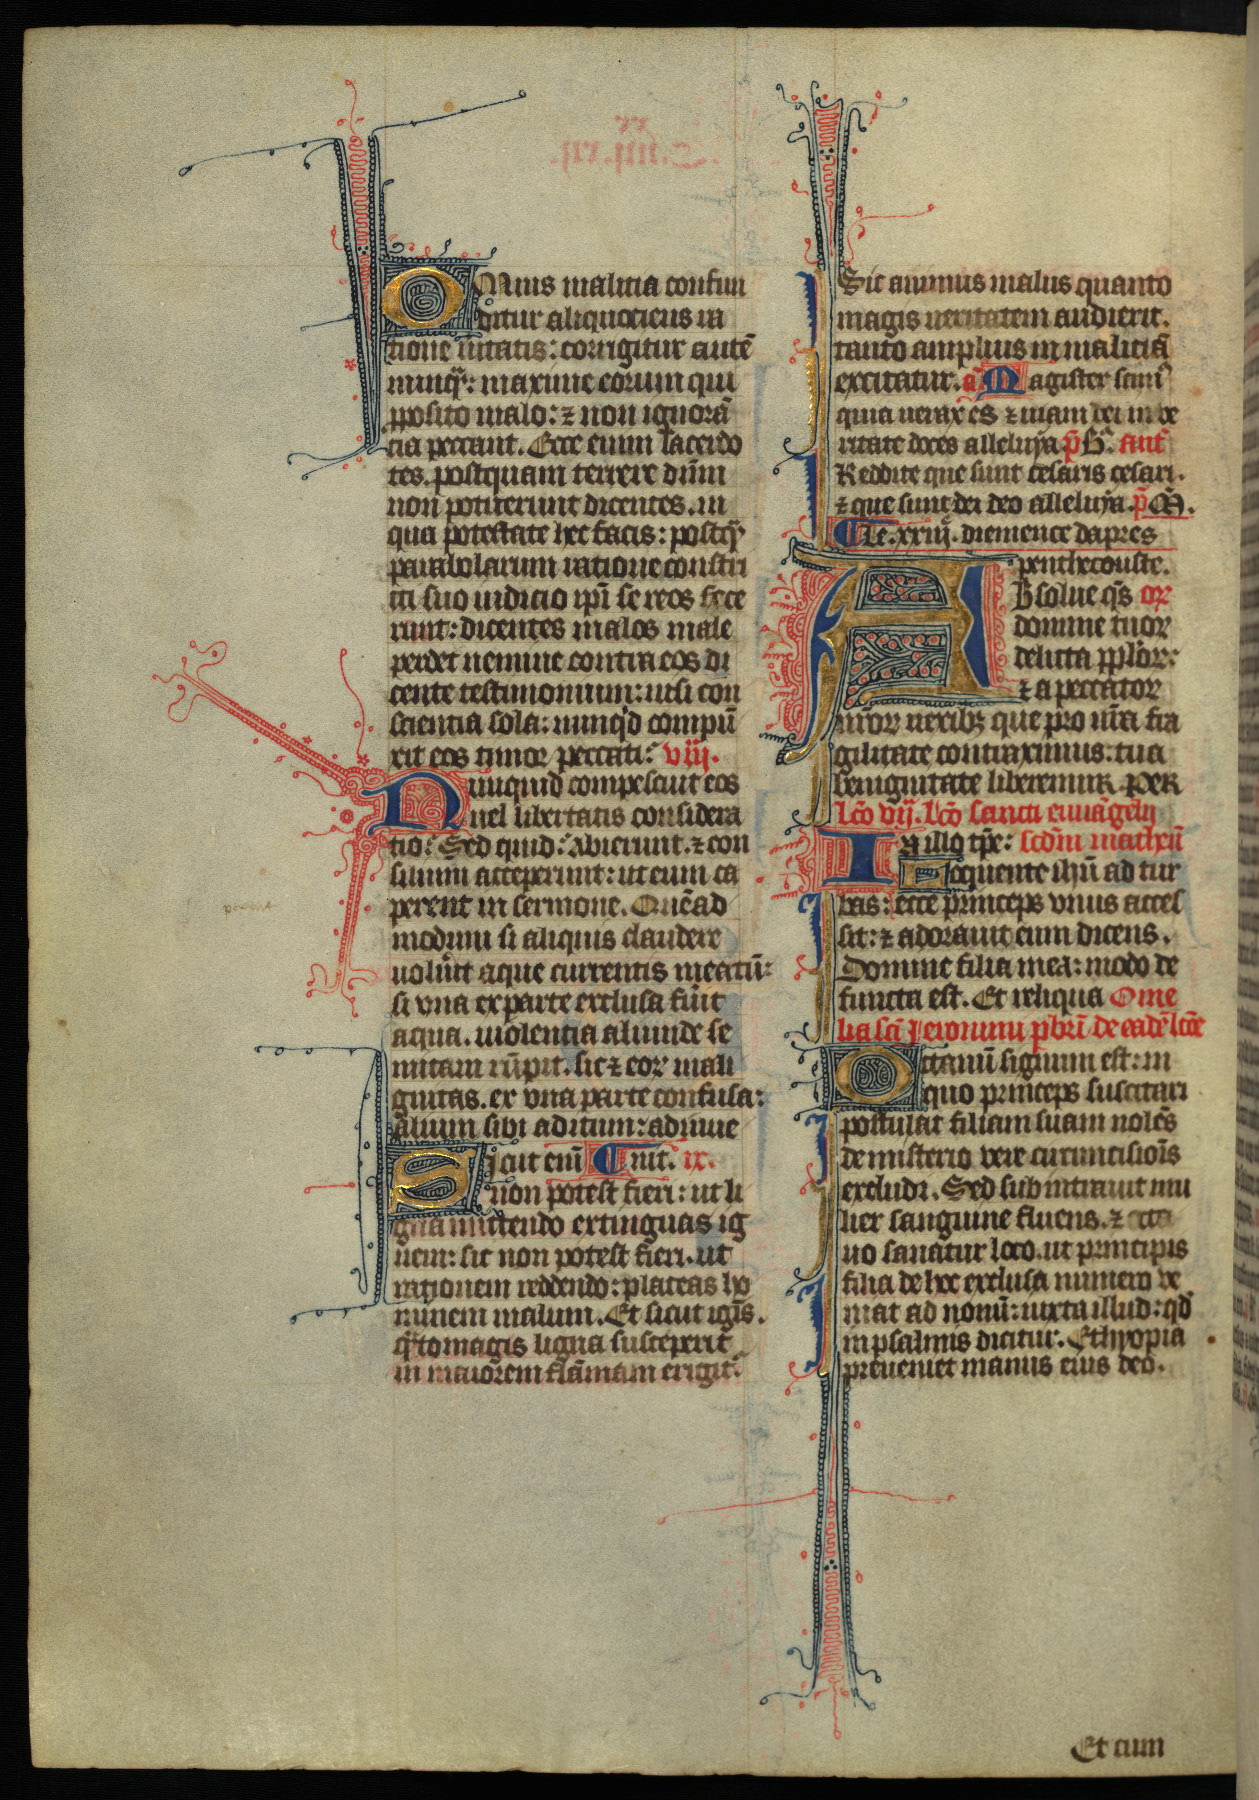 Omis malitia confun
ditur aliquociens ra
tione ūitatis: corrigitur autē
nunqᷓ: maxime eorum qui
ꝓposito malo: ⁊ non ignorā
cia peccant. Ecce enim sacerdo
tes. postquam terrere dn̄m
non potuerunt dicentes. in
qua potestate hec facis: postqᷓ
parabolarum ratione constri
cti suo iudicio ip̄i se reos fece
runt: dicentes malos male
perdet nemine contra eos di
cente testimonium: nisi con
scientia sola: nunqͥd compūn
xit eos timor peccati? viij.
Nunquid compescuit eos
uel libertatis considera
tio? Sed quid? Abierunt. ⁊ con
silium acceperunt: ut eum ca
perent in sermone. Quēad
modum si aliquis claudere
uolūit aque currentis meatū:
si vna ex parte exclusa fūit
aqua. uiolentia aliunde se
mitam rūpit. sic ⁊ eoꝝ mali
gnitas. ex vna parte confusa:
alium sibi aditum: adinue
Sicut enī ¶ nit. ix.
non potest fieri: ut li
gna mittendo extinguas ig
nem: sic non potest fieri. ut
rationem reddendo: placeas ho
minem malum. Et sicut igīs.
qͣnto magis ligna susceperit
in maiorem flāmam erigit᷑.
Sic animus malus quanto
magis ueritatem audierit.
tanto amplius in maliciā
excitatur. a᷑ Magister scim᷒
quia uerax es ⁊ uiam dei in ve
ritate doces alleluya p̄ B᷑. ant̄
Reddite que sunt cesaris cesari.
⁊ que sunt dei deo alleluya. p̄ M̄.
¶ Le. xxiij. diemence dapres
penthecouste.
Absolue q̄s oꝝ
domine tuoꝝ
delicta ppl̄oꝝ:
⁊ a peccatoꝝ
nr̄oꝝ nexibꝫ que pro nr̄a fra
gilitate contraximus: tua
benignitate liberemur. Per
Lc̄o vij. Lc̄o sancti euuāgelij
In illo tp̄e: scdm̄ matheū
Loquente ihū ad tur
bas: ecce princeps vnus acces
sit: ⁊ adorauit eum dicens.
Domine filia mea: modo de
functa est. Et reliqua Ome
lia sc̄i Ieronimi p̄bri de eadē lc̄oe
Octauū signum est: in
quo princeps suscitari
postulat filiam suam nolēs
de misterio vere circuncisiōis
excludi. Sed subintrauit mu
lier sanguine fluens. ⁊ octa
uo sanatur loco. ut principis
filia de hoc exclusa numero ve
niat ad nonū: iuxta illud: qd̄
in psalmis dicitur. Ethyopia
preueniet manus eius deo.
Et cum